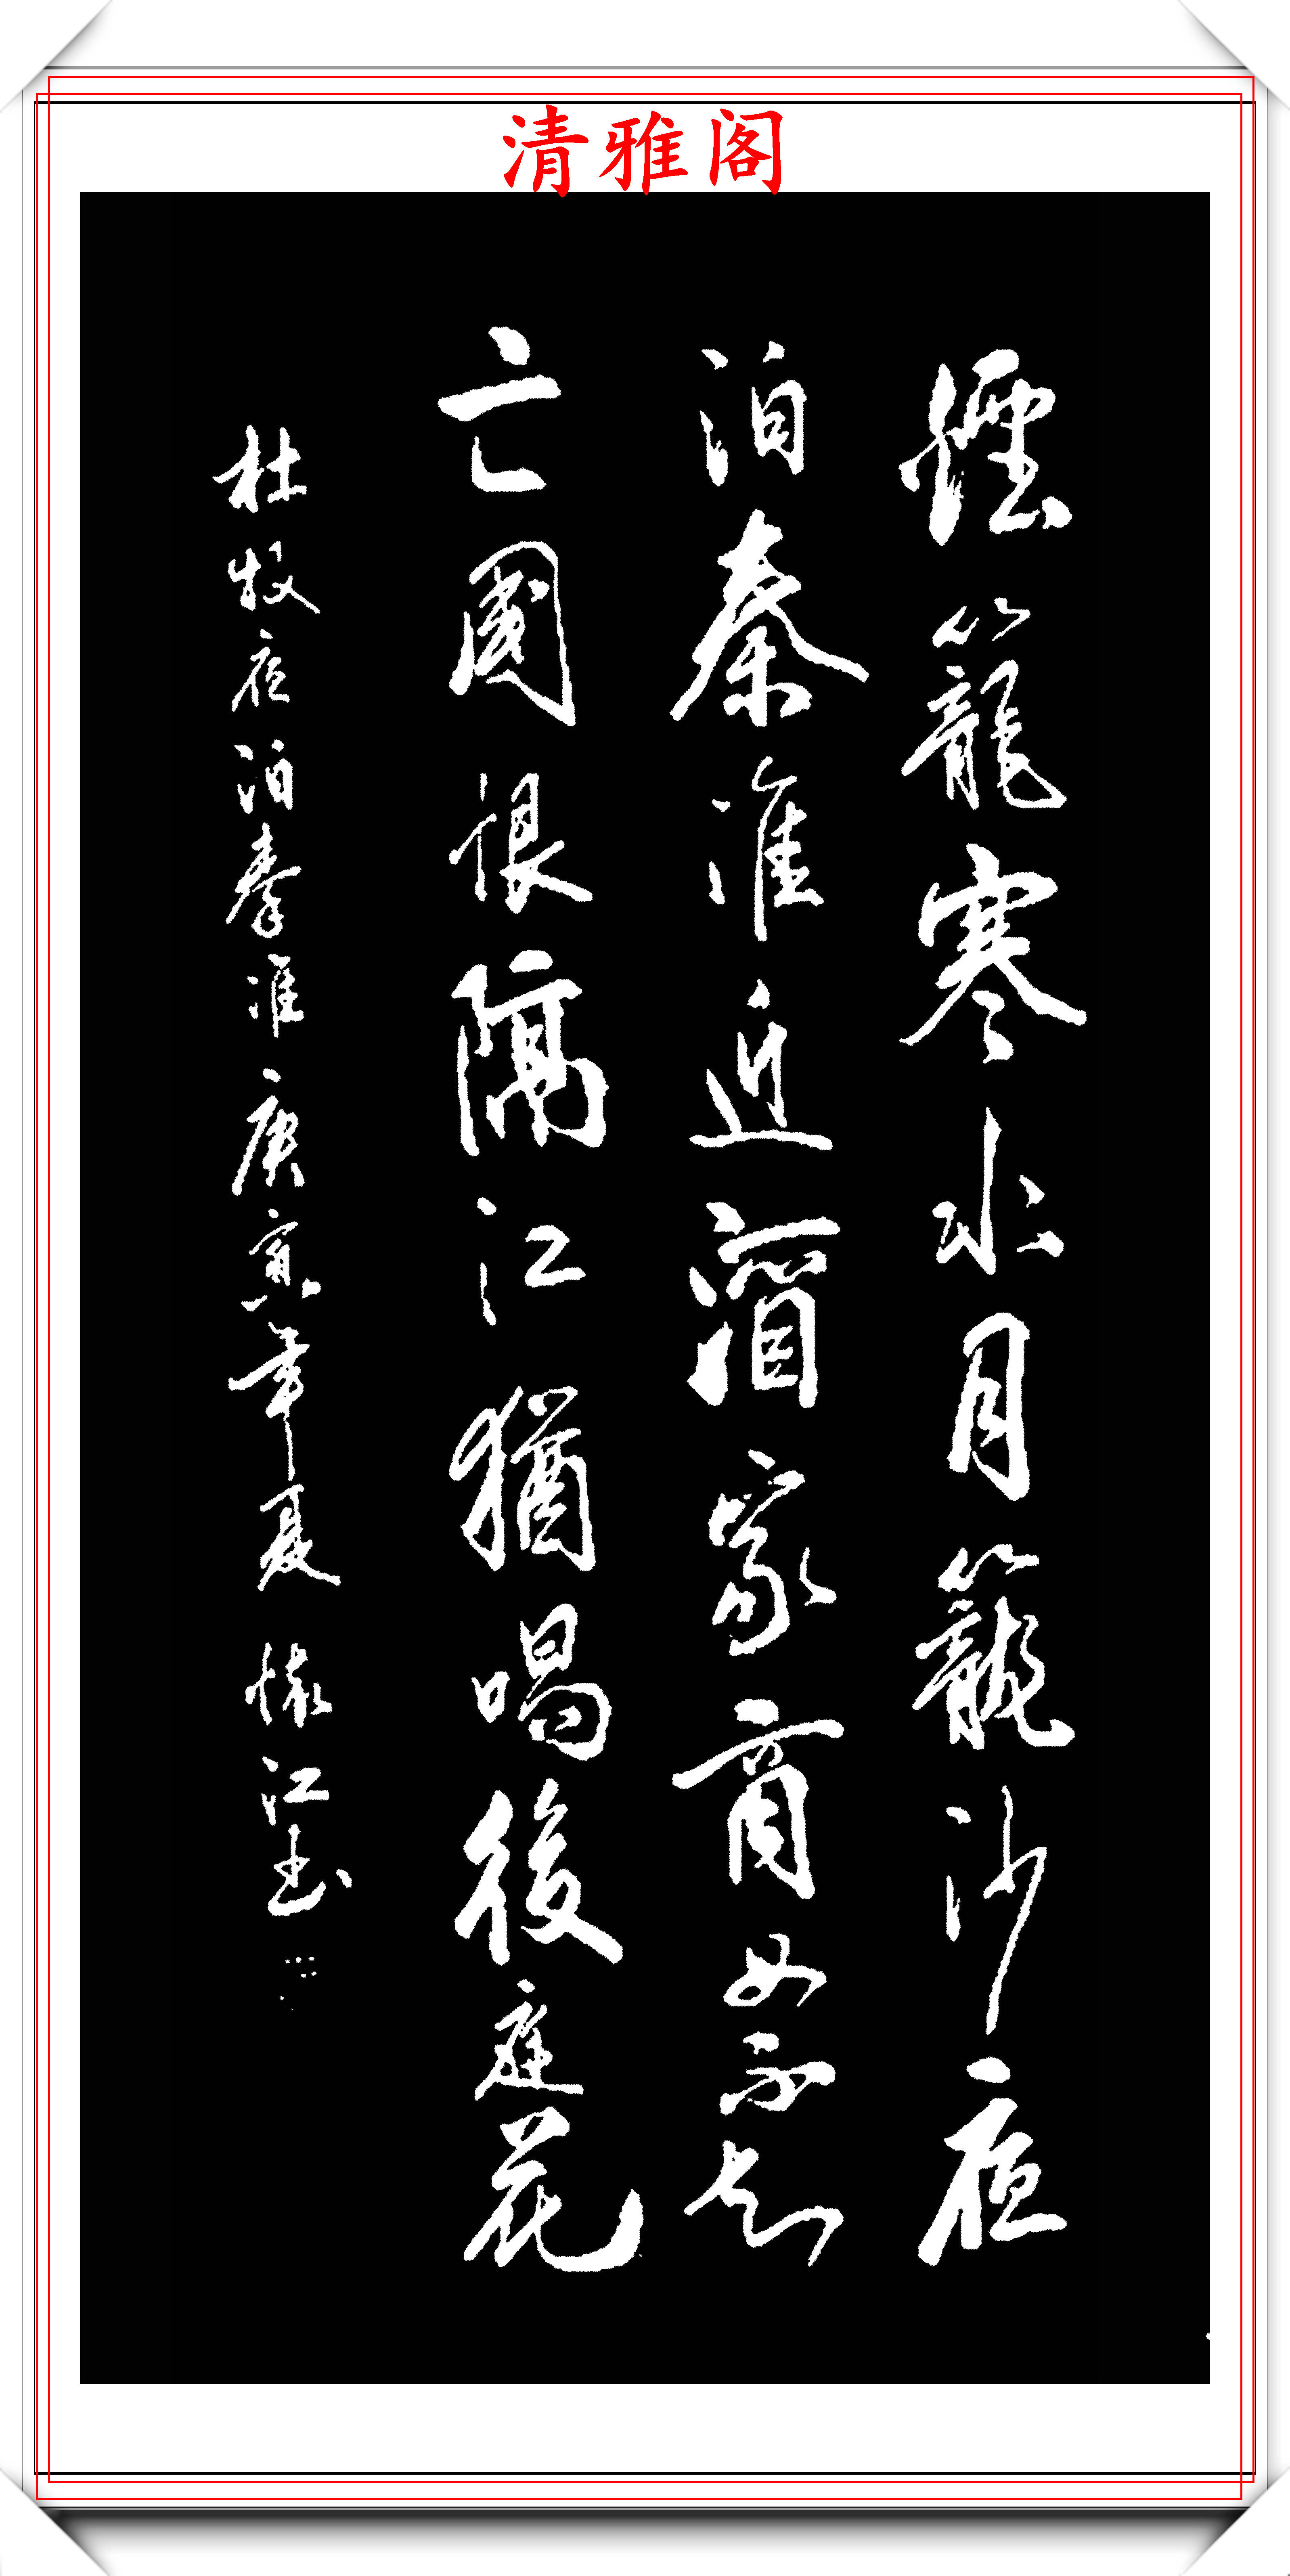 清雅阁
煙籠寒水月籠沙夜
泊秦淮近酒家商女不知
亡國恨隔江猶唱後庭花
杜牧夜泊秦淮庚寅年夏懷江书